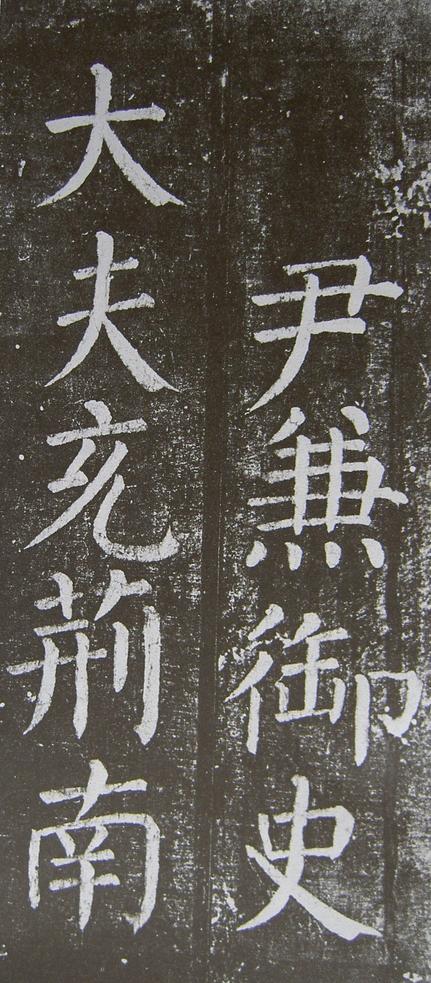 尹兼御史
大夫充荆南